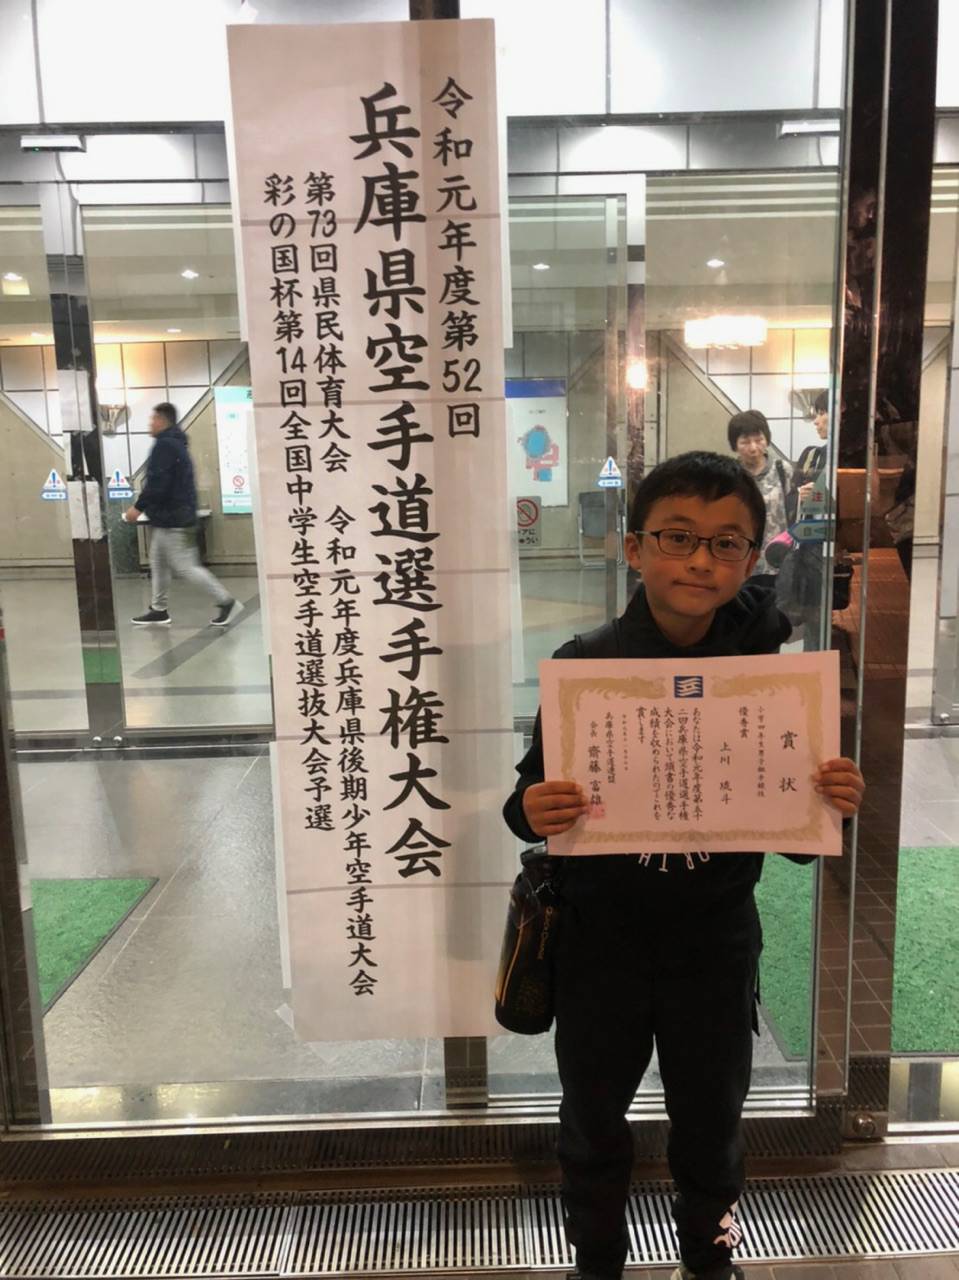 令和元年度第52回
兵庫県空手道選手権大会
第73回県民体育大会 令和元年度兵庫県後期少年空手道大会
彩の国杯第14回全国中学生空手道選抜大会予選
賞状
小学四年生男子組手競技
優秀賞
上川 琉斗
あなたは令和元年度第五十
二回兵庫県空手道選手権
大会において頭書の優秀な
成績を収められたのでこれを
賞します
兵庫県空手道連盟
会長 齋藤富雄
注